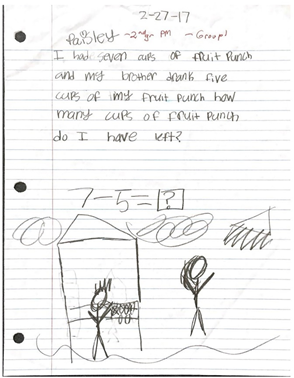 2-27-17
Paisley ~2nd gr PM ~ Group 1
I had seven cups of fruit Punch
and my brother drank five
cups of my fruit Punch how
many cups of fruit Punch
do I have left?
7-5=?